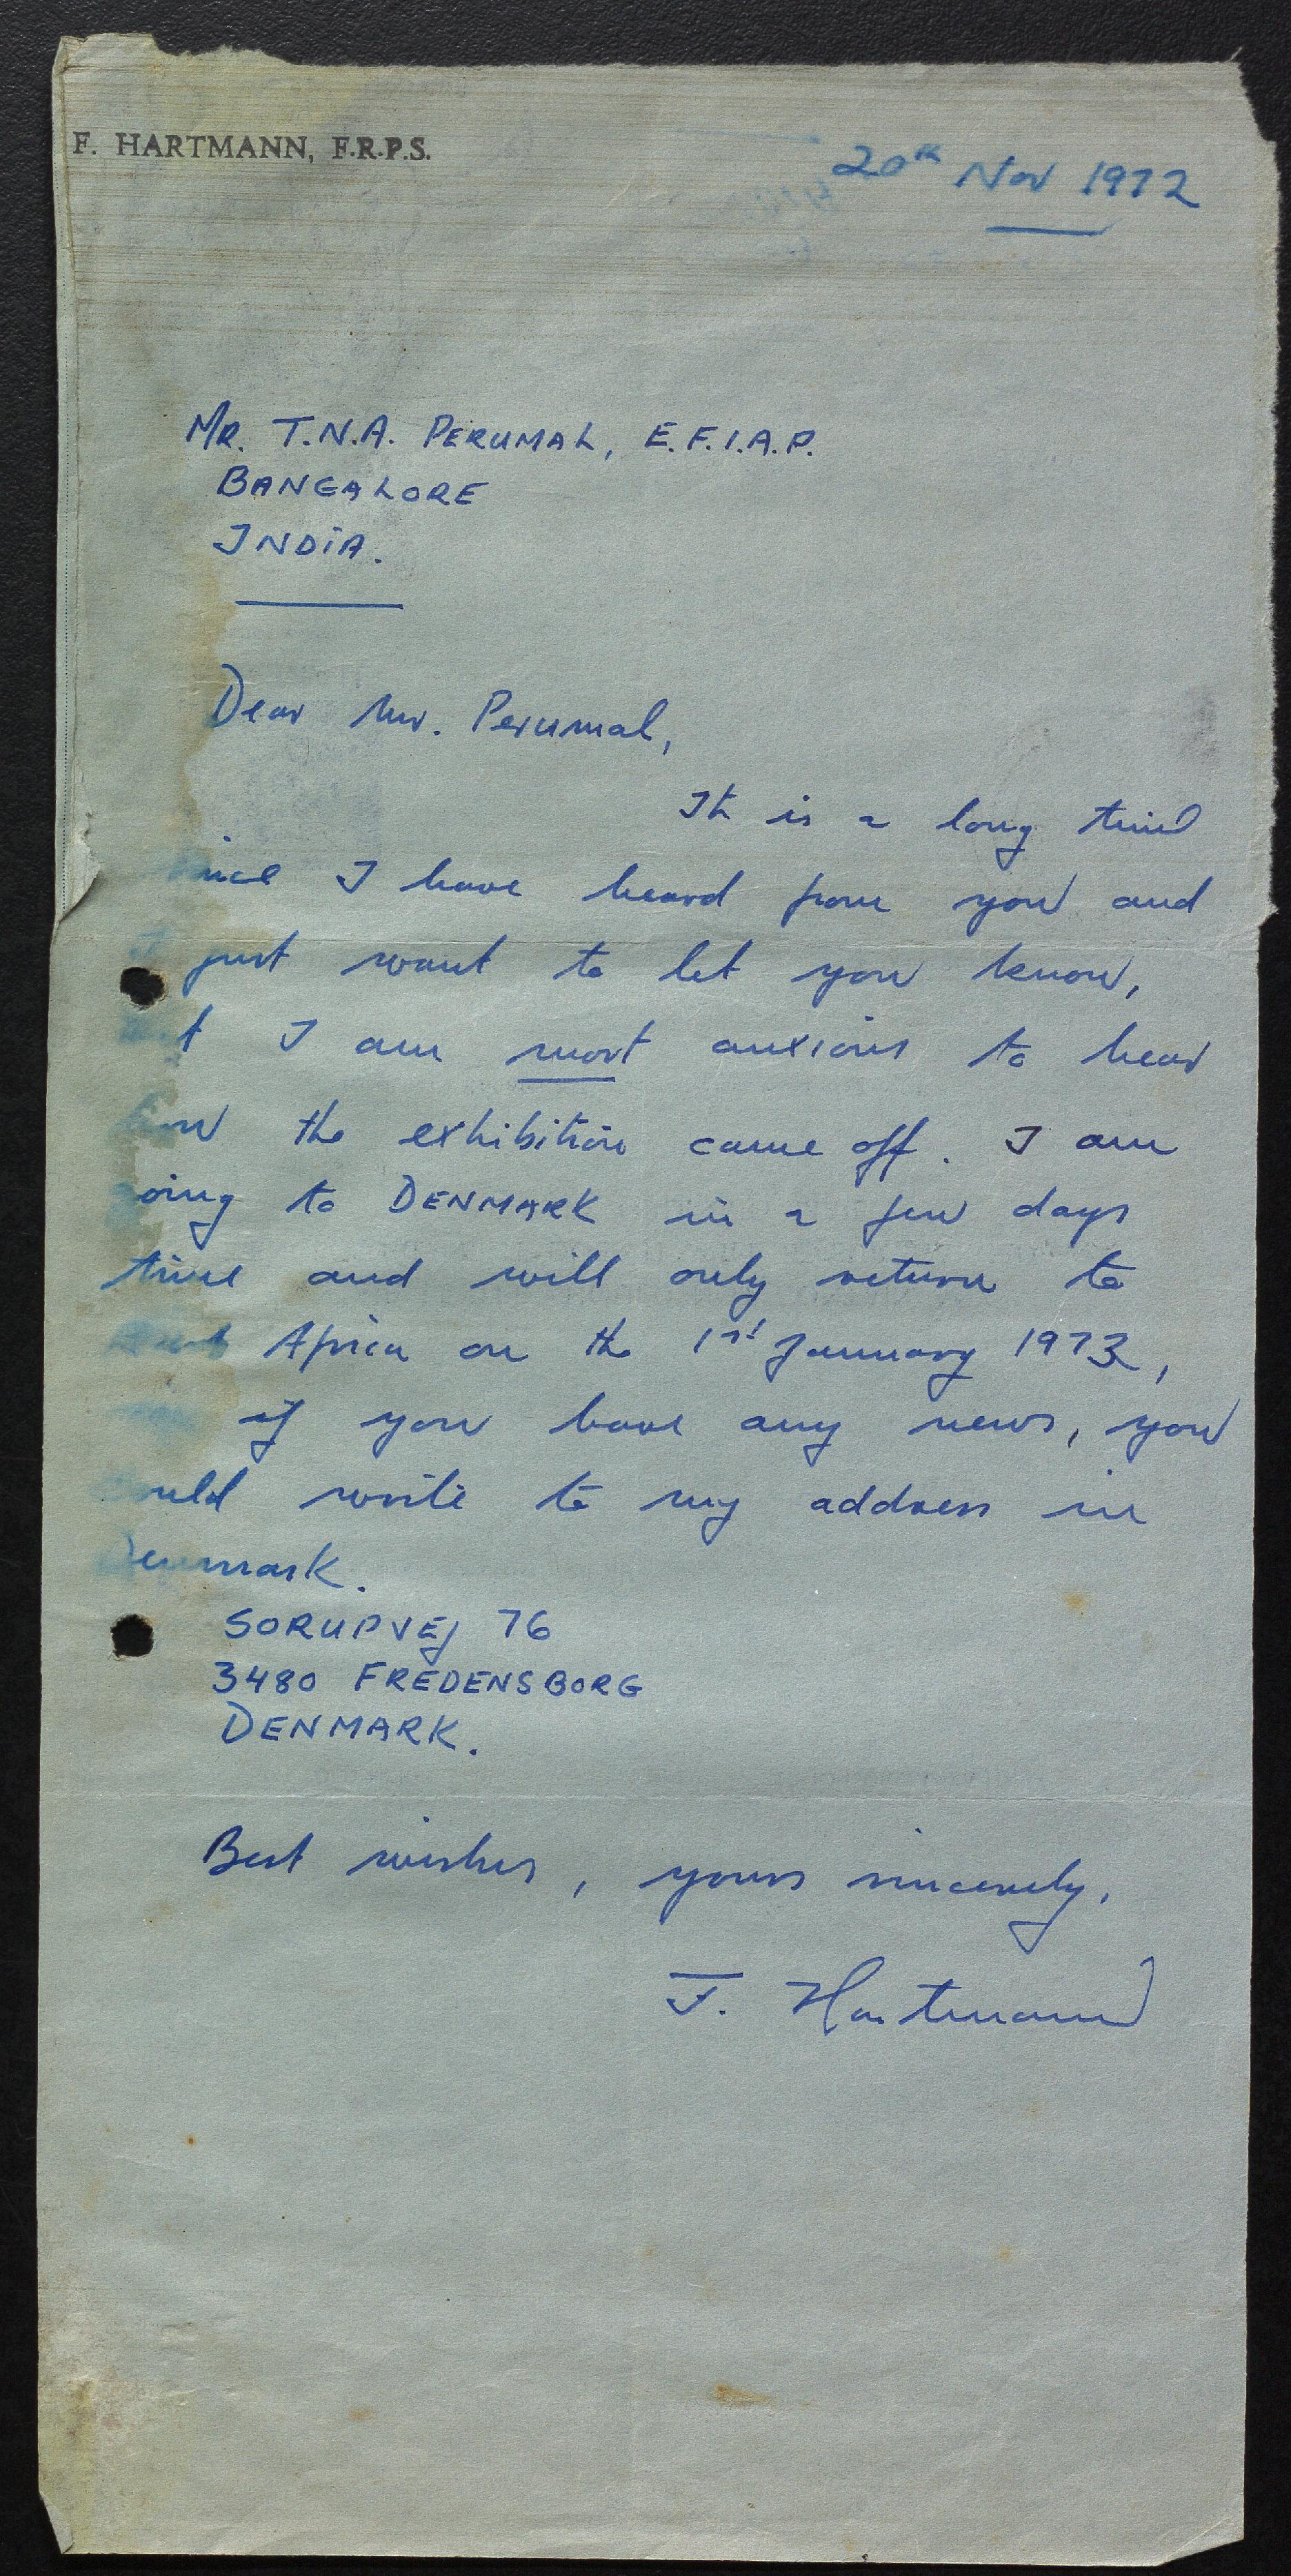 F. HARTMANN, F.R.P.S.
20th Nov 1972
MR. T.N.A. PERUMAL, E.F.I.A.P.
BANGALORE
INDIA.
Dear Mr. Perumal,
It is a long time
since I have heard from you and
I just want to let you know,
that I am most anxious to hear
how the exhibition came off. I am
going to DENMARK in a few days
time and will only return to
Africa on the 1st January 1973,
if you have any news, you
could write to my address in
Denmark.
SORUPVEJ 76
3480 FREDENSBORG
DENMARK.
Best wishes, yours sincerely,
F. Hartmann